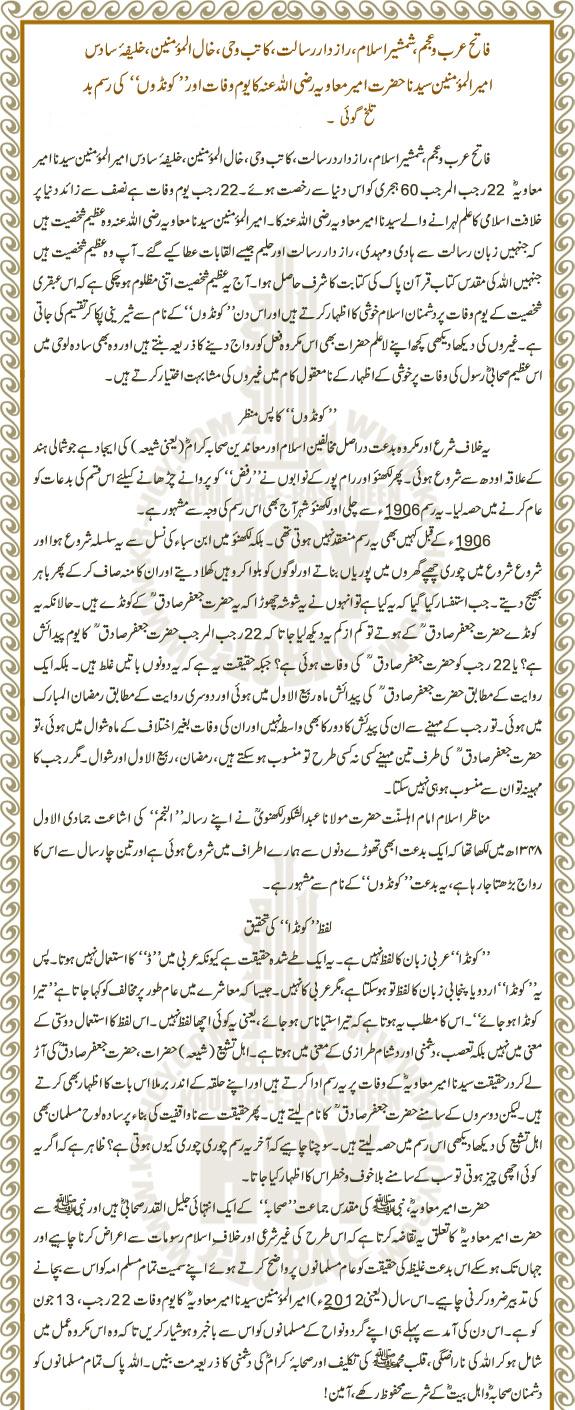 فاتح عرب و عجم، شمشیر اسلام، راز دار رسالت، کاتب وحی، خال المؤمنین، خلیفۂ سادس
امیر المؤمنین سیدنا حضرت امیر معاویہ رضی اللہ عنہ کا یوم وفات اور ’’کونڈوں‘‘ کی رسم بد
تلخ گوئی ۔
فاتح عرب و عجم، شمشیر اسلام، راز دار رسالت، کاتب وحی، خال المؤمنین، خلیفۂ سادس امیر المؤمنین سیدنا امیر
معاویہؓ 22 رجب المرجب 60 ہجری کو اس دنیا سے رخصت ہوئے۔ 22 رجب یوم وفات ہے نصف سے زائد دنیا پر
خلافت اسلامی کا علم لہرانے والے سیدنا امیر معاویہ رضی اللہ عنہ کا۔ امیر المؤمنین سیدنا معاویہ رضی اللہ عنہ وہ عظیم شخصیت ہیں
کہ جنہیں زبان رسالت سے ہادی و مہدی، راز دار رسالت اور حلیم جیسے القابات عطا کیے گئے۔ آپ وہ عظیم شخصیت ہیں
جنہیں اللہ کی مقدس کتاب قرآن پاک کی کتابت کا شرف حاصل ہوا۔ آج یہ عظیم شخصیت اتنی مظلوم ہوچکی ہے کہ اس عبقری
شخصیت کے یوم وفات پر دشمنان اسلام خوشی کا اظہار کرتے ہیں اور اس دن ’’کونڈوں‘‘ کے نام سے شیرینی پکا کر تقسیم کی جاتی
ہے۔ غیروں کی دیکھا دیکھی کچھ اپنے لاعلم حضرات بھی اس مکروہ فعل کو رواج دینے کا ذریعہ بنتے ہیں اور وہ بھی سادہ لوحی میں
اس عظیم صحابیٔ رسول کی وفات پر خوشی کے اظہار کے نامعقول کام میں غیروں کی مشابہت اختیار کرتے ہیں ۔
’’کونڈوں‘‘ کا پس منظر
یہ خلاف شرع اور مکروہ بدعت دراصل مخالفین اسلام اور معاندین صحابہ کرامؓ (یعنی شیعہ) کی ایجاد ہے جو شمالی ہند
کے علاقہ اودھ سے شروع ہوئی۔ پھر لکھنؤ اور رام پور کے نوابوں نے ’’رفض‘‘ کو پروانے چڑھانے کیلئے اس قسم کی بدعات کو
عام کرنے میں حصہ لیا۔ یہ رسم 1906ء سے چلی اور لکھنؤ شہر آج بھی اس رسم کی وجہ سے مشہور ہے۔
1906ء کے قبل کہیں بھی یہ رسم منعقد نہیں ہوتی تھی۔ بلکہ لکھنؤ میں ابن سباء کی نسل سے یہ سلسلہ شروع ہوا اور
شروع شروع میں چوری چھپے گھروں میں پوریاں بناتے اور لوگوں کو بلوا کر وہیں کھلا دیتے اور ان کا منہ صاف کرکے پھر باہر
بھیج دیتے۔ جب استفسار کیا گیا کہ یہ کیا ہے تو انہوں نے یہ شوشہ چھوڑا کہ یہ حضرت جعفر صادقؒ کے کونڈے ہیں۔ حالانکہ یہ
کونڈے حضرت جعفر صادقؒ کے ہوتے تو کم از کم یہ دیکھ لیا جاتا کہ 22 رجب المرجب حضرت جعفر صادقؒ کا یوم پیدائش
ہے؟ یا 22 رجب کو حضرت جعفر صادقؒ کی وفات ہوئی ہے؟ جبکہ حقیقت یہ ہے کہ یہ دونوں باتیں غلط ہیں۔ بلکہ ایک
روایت کے مطابق حضرت جعفر صادقؒ کی پیدائش ماہ ربیع الاول میں ہوئی اور دوسری روایت کے مطابق رمضان المبارک
میں ہوئی۔ تو رجب کے مہینے سے ان کی پیدئش کا دور کا بھی واسطہ نہیں اور ان کی وفات بغیر اختلاف کے ماہ شوال میں ہوئی، تو
حضرت جعفر صادقؒ کی طرف تین مہینے کسی نہ کسی طرح تو منسوب ہوسکتے ہیں، رمضان، ربیع الاول اور شوال۔ مگر رجب کا
مہینہ تو ان سے منسوب ہو ہی نہیں سکتا۔
مناظر اسلام امام اہلسنّت حضرت مولانا عبدالشکور لکھنویؒ نے اپنے رسالہ ’’النجم‘‘ کی اشاعت جمادی الاول
۱۳۴۸ھ میں لکھا تھا کہ ایک بدعت ابھی تھوڑے دنوں سے ہمارے اطراف میں شروع ہوئی ہے اور تین چار سال سے اس کا
رواج بڑھتا جا رہا ہے، یہ بدعت ’’کونڈوں‘‘ کے نام سے مشہور ہے۔
لفظ ’’کونڈا‘‘ کی تحقیق
’’کونڈا‘‘ عربی زبان کا لفظ نہیں ہے۔ یہ ایک طے شدہ حقیقت ہے کیونکہ عربی میں ’’ڈ‘‘ کا استعمال نہیں ہوتا۔ پس
یہ ’’کونڈا‘‘ اردو یا پنجابی زبان کا لفظ تو ہوسکتا ہے، مگر عربی کا نہیں۔ جیسا کہ معاشرے میں عام طور پر مخالف کو کہا جاتا ہے ’’تیرا
کونڈا ہو جائے‘‘۔ اس کا مطلب یہ ہوتا ہے کہ تیرا ستیاناس ہوجائے، یعنی یہ کوئی اچھا لفظ نہیں۔ اس لفظ کا استعمال دوستی کے
معنی میں نہیں بلکہ تعصب، دشمنی اور دشنام طرازی کے معنی میں ہوتا ہے۔ اہل تشیع (شیعہ) حضرات، حضرت جعفر صادقؒ کی آڑ
لے کر در حقیقت سیدنا امیر معاویہؓ کے وفات پر یہ رسم ادا کرتے ہیں اور اپنے حلقہ کے اندر برملا اس بات کا اظہار بھی کرتے
ہیں۔ لیکن دوسروں کے سامنے حضرت جعفر صادقؒ کا نام لیتے ہیں۔ پھر حقیقت سے ناواقفیت کی بناء پر سادہ لوح مسلمان بھی
اہل تشیع کی دیکھا دیکھی اس رسم میں حصہ لیتے ہیں۔ سوچنا چاہیے کہ آخر یہ رسم چوری چوری کیوں ہوتی ہے؟ ظاہر ہے کہ اگر یہ
کوئی اچھی چیز ہوتی تو سب کے سامنے بلاخوف و خطر اس کا اظہار کیا جاتا۔
حضرت امیر معاویہؓ، نبی ﷺ کی مقدس جماعت ’’صحابہ‘‘ کے ایک انتہائی جلیل القدر صحابیؓ ہیں اور نبی ﷺ سے
حضرت امیر معاویہؓ کا تعلق یہ تقاضہ کرتا ہے کہ اس طرح کی غیر شرعی اور خلاف اسلام رسومات سے اعراض کرنا چاہیے اور
جہاں تک ہوسکے اس بدعت غلیظہ کی حقیقت کو عام مسلمانوں پر واضح کرتے ہوئے اپنے سمیت تمام مسلم امہ کو اس سے بچانے
کی تدبیر ضرور کرنی چاہیے۔ اس سال (یعنی 2012ء) امیر المؤمنین سیدنا امیر معاویہؓ کا یوم وفات 22 رجب، 13 جون
کو ہے۔ اس دن کی آمد سے پہلے ہی اپنے گرد و نواح کے مسلمانوں کو اس سے باخبر و ہوشیار کریں تاکہ وہ اس مکروہ عمل میں
شامل ہوکر اللہ کی ناراضگی، قلب محمد ﷺ کی تکلیف اور صحابۂ کرامؓ کی دشمنی کا ذریعہ مت بنیں۔ اللہ پاک تمام مسلمانوں کو
دشمنان صحابہؓ و اہل بیتؓ کے شر سے محفوظ رکھے، آمین!